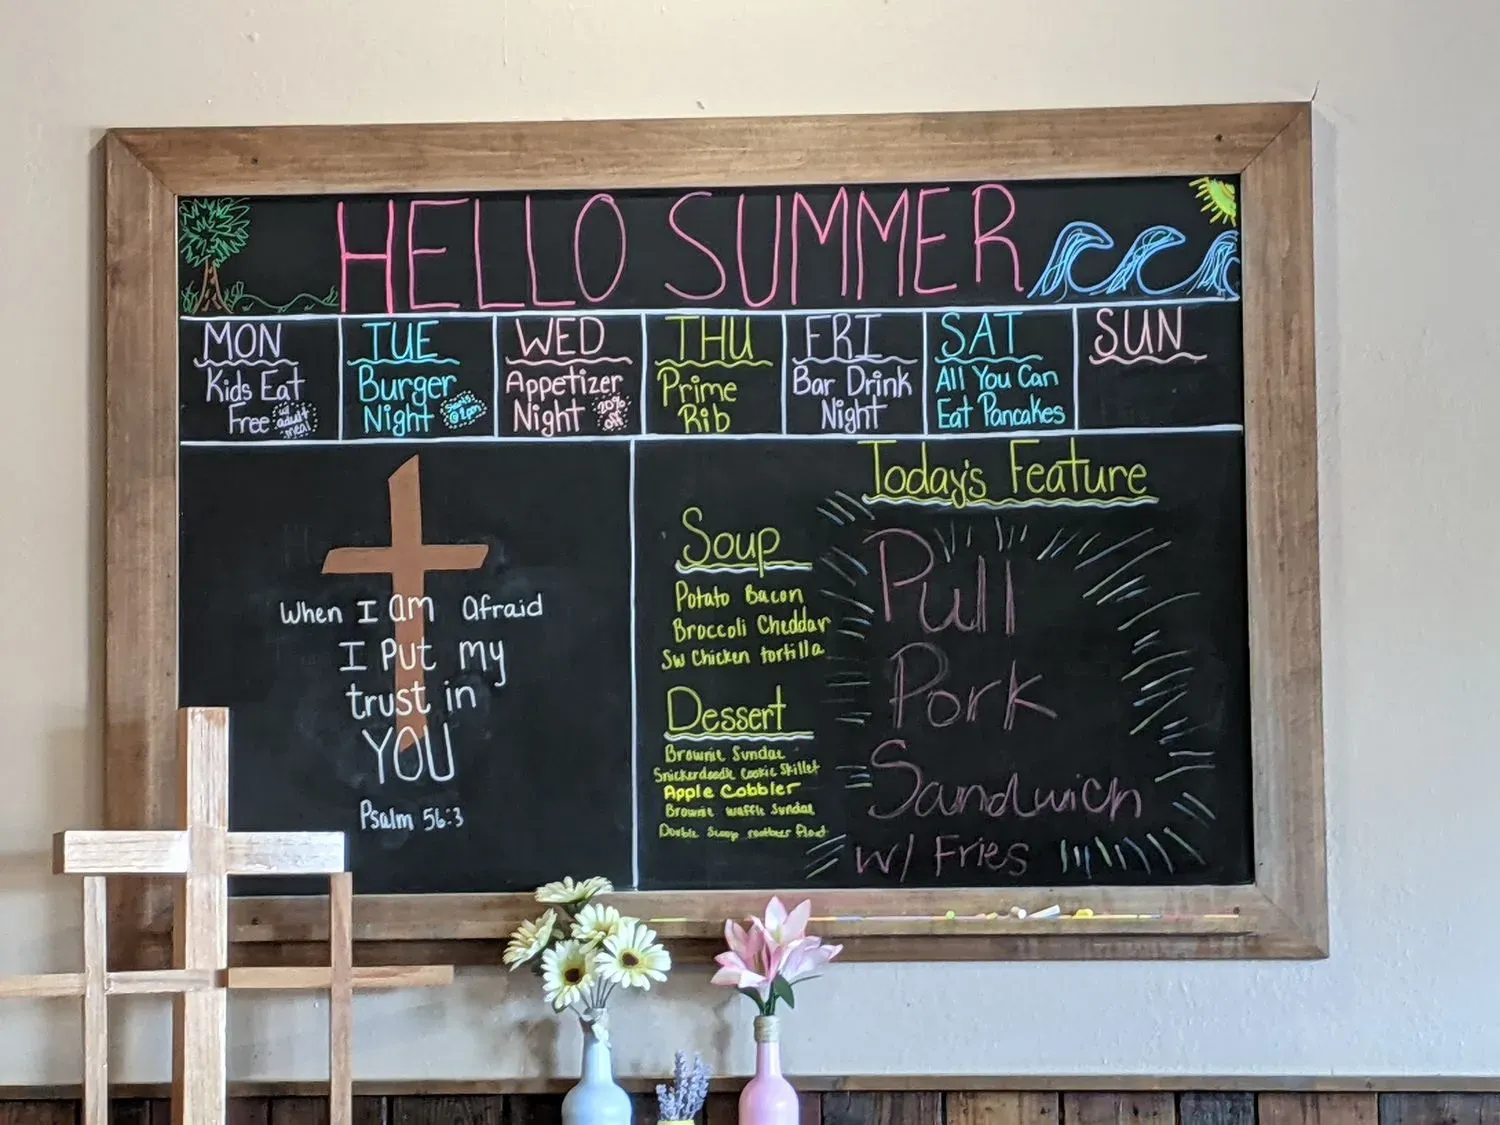 HELLO SUMMER
MON
Kids Eat
Free w/ adult meal
TUE
Burger
Night
WED
Appetizer
Night 20% off
THU
Prime
Rib
FRI
Bar Drink
Night
SAT
All You Can
Eat Pancakes
SUN
When I am afraid
I Put my
trust in
YOU
Psalm 56:3
Today's Feature
Soup
Potato Bacon
Broccoli Cheddar
SW Chicken tortilla
Dessert
Brownie Sundae
Snickerdoodle Cookie Skillet
Apple Cobbler
Brownie Waffle Sundae
Double Scoop rootbeer float
Pull
Pork
Sandwich
w/ Fries